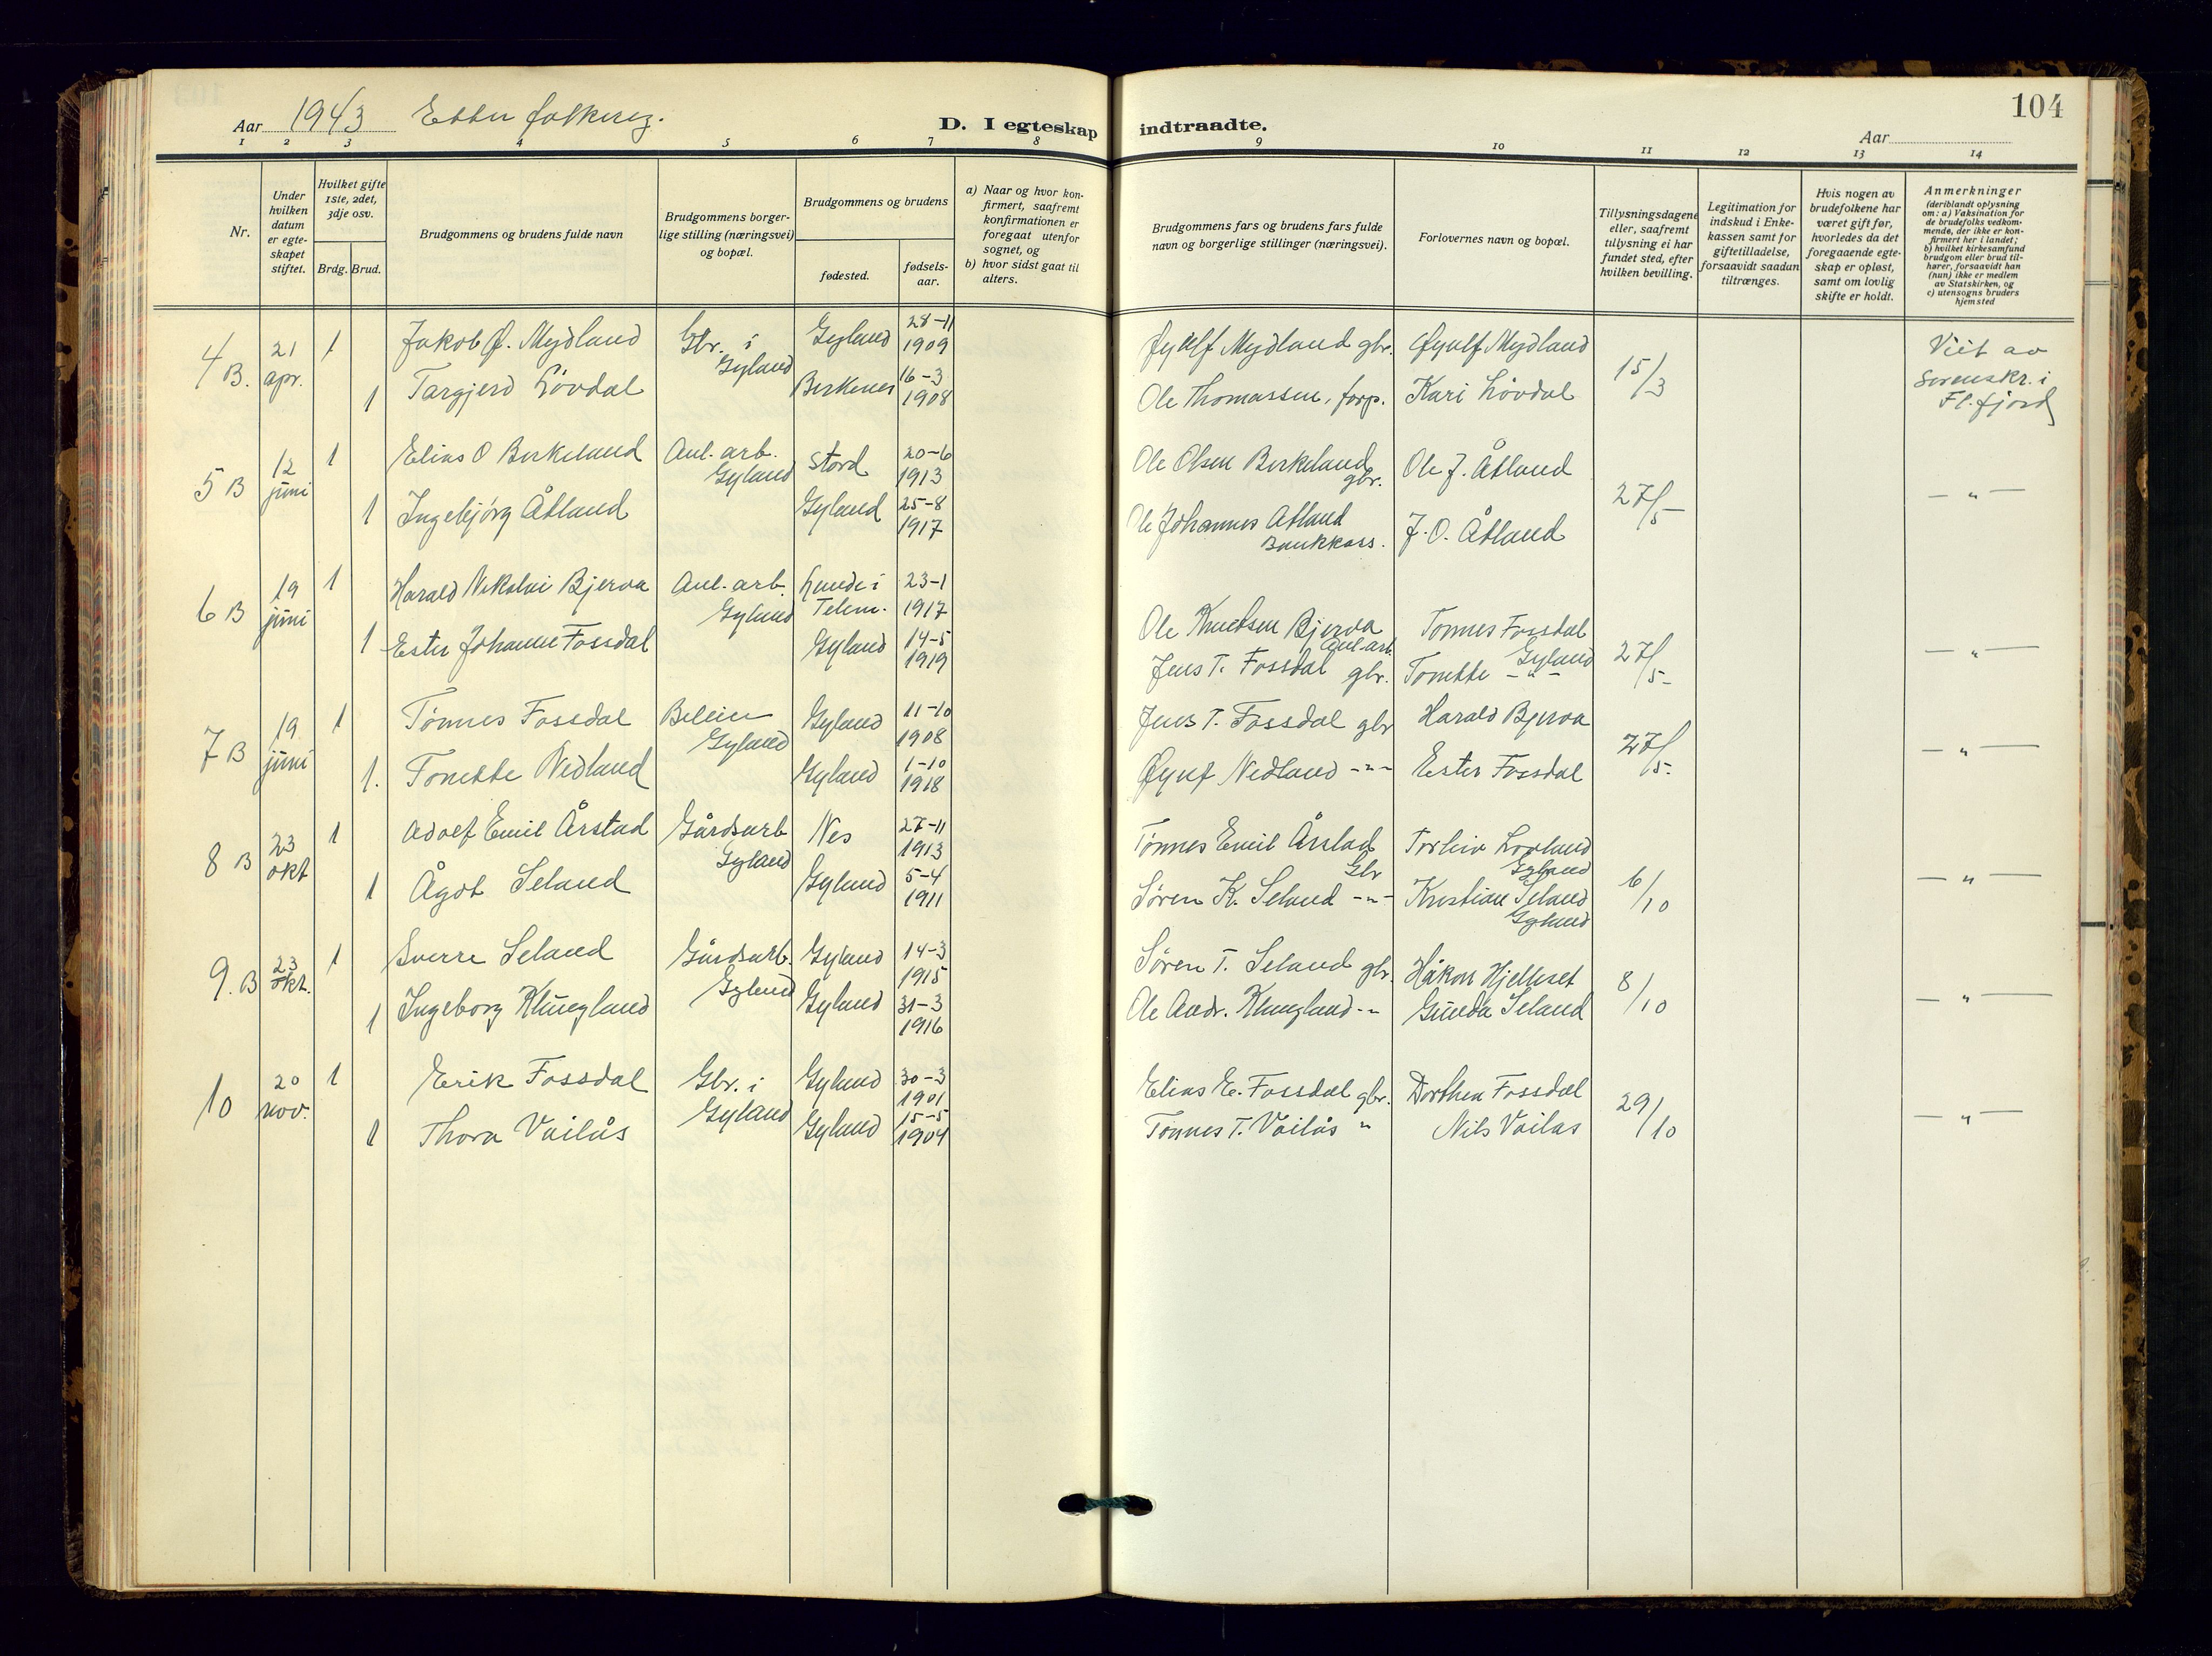 104
Aar 1943 Etter folkereg.
D. I egteskap indtraadte.
Aar
1 2 3 4 5 6 7 8 9 10 11 12 13 14
Nr.
Under hvilken datum er egteskapet stiftet.
Hvilket gifte 1ste, 2det, 3dje osv.
Brdg. Brud.
Brudgommens og brudens fulde navn
Brudgommens borgerlige stilling (næringsvei) og bopæl.
Brudgommens og brudens
fødested.
fødselsaar.
a) Naar og hvor konfirmert, saafremt konfirmationen er foregaat utenfor sognet, og
b) hvor sidst gaat til alters.
Brudgommens fars og brudens fars fulde navn og borgerlige stillinger (næringsvei).
Forlovernes navn og bopæl.
Tillysningsdagene eller, saafremt tillysning ei har fundet sted, efter hvilken bevilling.
Legitimation for indskud i Enkekassen samt for giftetilladelse, forsaavidt saadan tiltrænges.
Hvis nogen av brudefolkene har været gift før, hvorledes da det foregaaende egteskap er opløst, samt om lovlig skifte er holdt.
Anmerkninger (deriblandt oplysning om: a) Vaksination for de brudefolks vedkommende, der ikke er konfirmert her i landet; b) hvilket kirkesamfund brudgom eller brud tilhører, forsaavidt han (hun) ikke er medlem av Statskirken, og c) utensogns bruders hjemsted
4 B. 21 apr. 1 Jakob Ø. Mydland Gbr. i Gyland Gyland 28-11 1909 Øyulf Mydland gbr. Øyulf Mydland 15/3 Viet av Sorenskr. i Fl.fjord
1 Targjerd Lövdal Birkenes 16-3 1908 Ole Thomassen, forp. Kari Lövdal
5 B 12 juni 1 Elias O Birkeland Anl. arb. Gyland Stord 20-6 1913 Ole Olsen Birkeland gbr. Ole J. Åtland 27/5 — " —
1 Ingebjørg Åtland Gyland 25-8 1917 Ole Johannes Åtland Bankkass. J. O. Åtland
6 B 19 juni 1 Harald Nikolai Bjerva Anl. arb. Gyland Lunde i Telem. 23-1 1917 Ole Knutsen Bjerva Anl.arb. Tønnes Fossdal Gyland 27/5 — " —
1 Ester Johanne Fossdal Gyland 14-5 1919 Jens T. Fossdal gbr. Tomtte — " —
7 B 19 juni 1 Tønnes Fossdal Gyland Gyland 11-10 1908 Jens T. Fossdal gbr Harald Bjerva 27/5. — " —
1. Tomtte Nedland Gyland 1-10 1918 Øyulf Nedland -"- Ester Fossdal
8 B 23 okt 1 Adolf Emil Årstad Gårdsarb Gyland Nes 27-11 1913 Tønnes Emil Årstad Gbr Torleiv Lovland Gyland 6/10 — " —
1 Ågot Seland Gyland 5-4 1911 Søren K. Seland -"- Kristian Seland Gyland
9. B 23 okt. 1 Sverre Seland Gårdsarb. Gyland Gyland 14-3 1915 Søren T. Seland gbr. Håkon Hjelleset 8/10 — " —
1 Ingeborg Klungland Gyland 31-3 1916 Ole Andr. Klungland -"- Gunda Seland
10 20 nov. 1 Erik Fossdal Gbr. i Gyland Gyland 30-3 1901 Elias E. Fossdal gbr. Dorthea Fossdal 29/10 — " —
1 Thora Vailås Gyland 15-5 1904 Tønnes T. Vailås " Nils Vailas